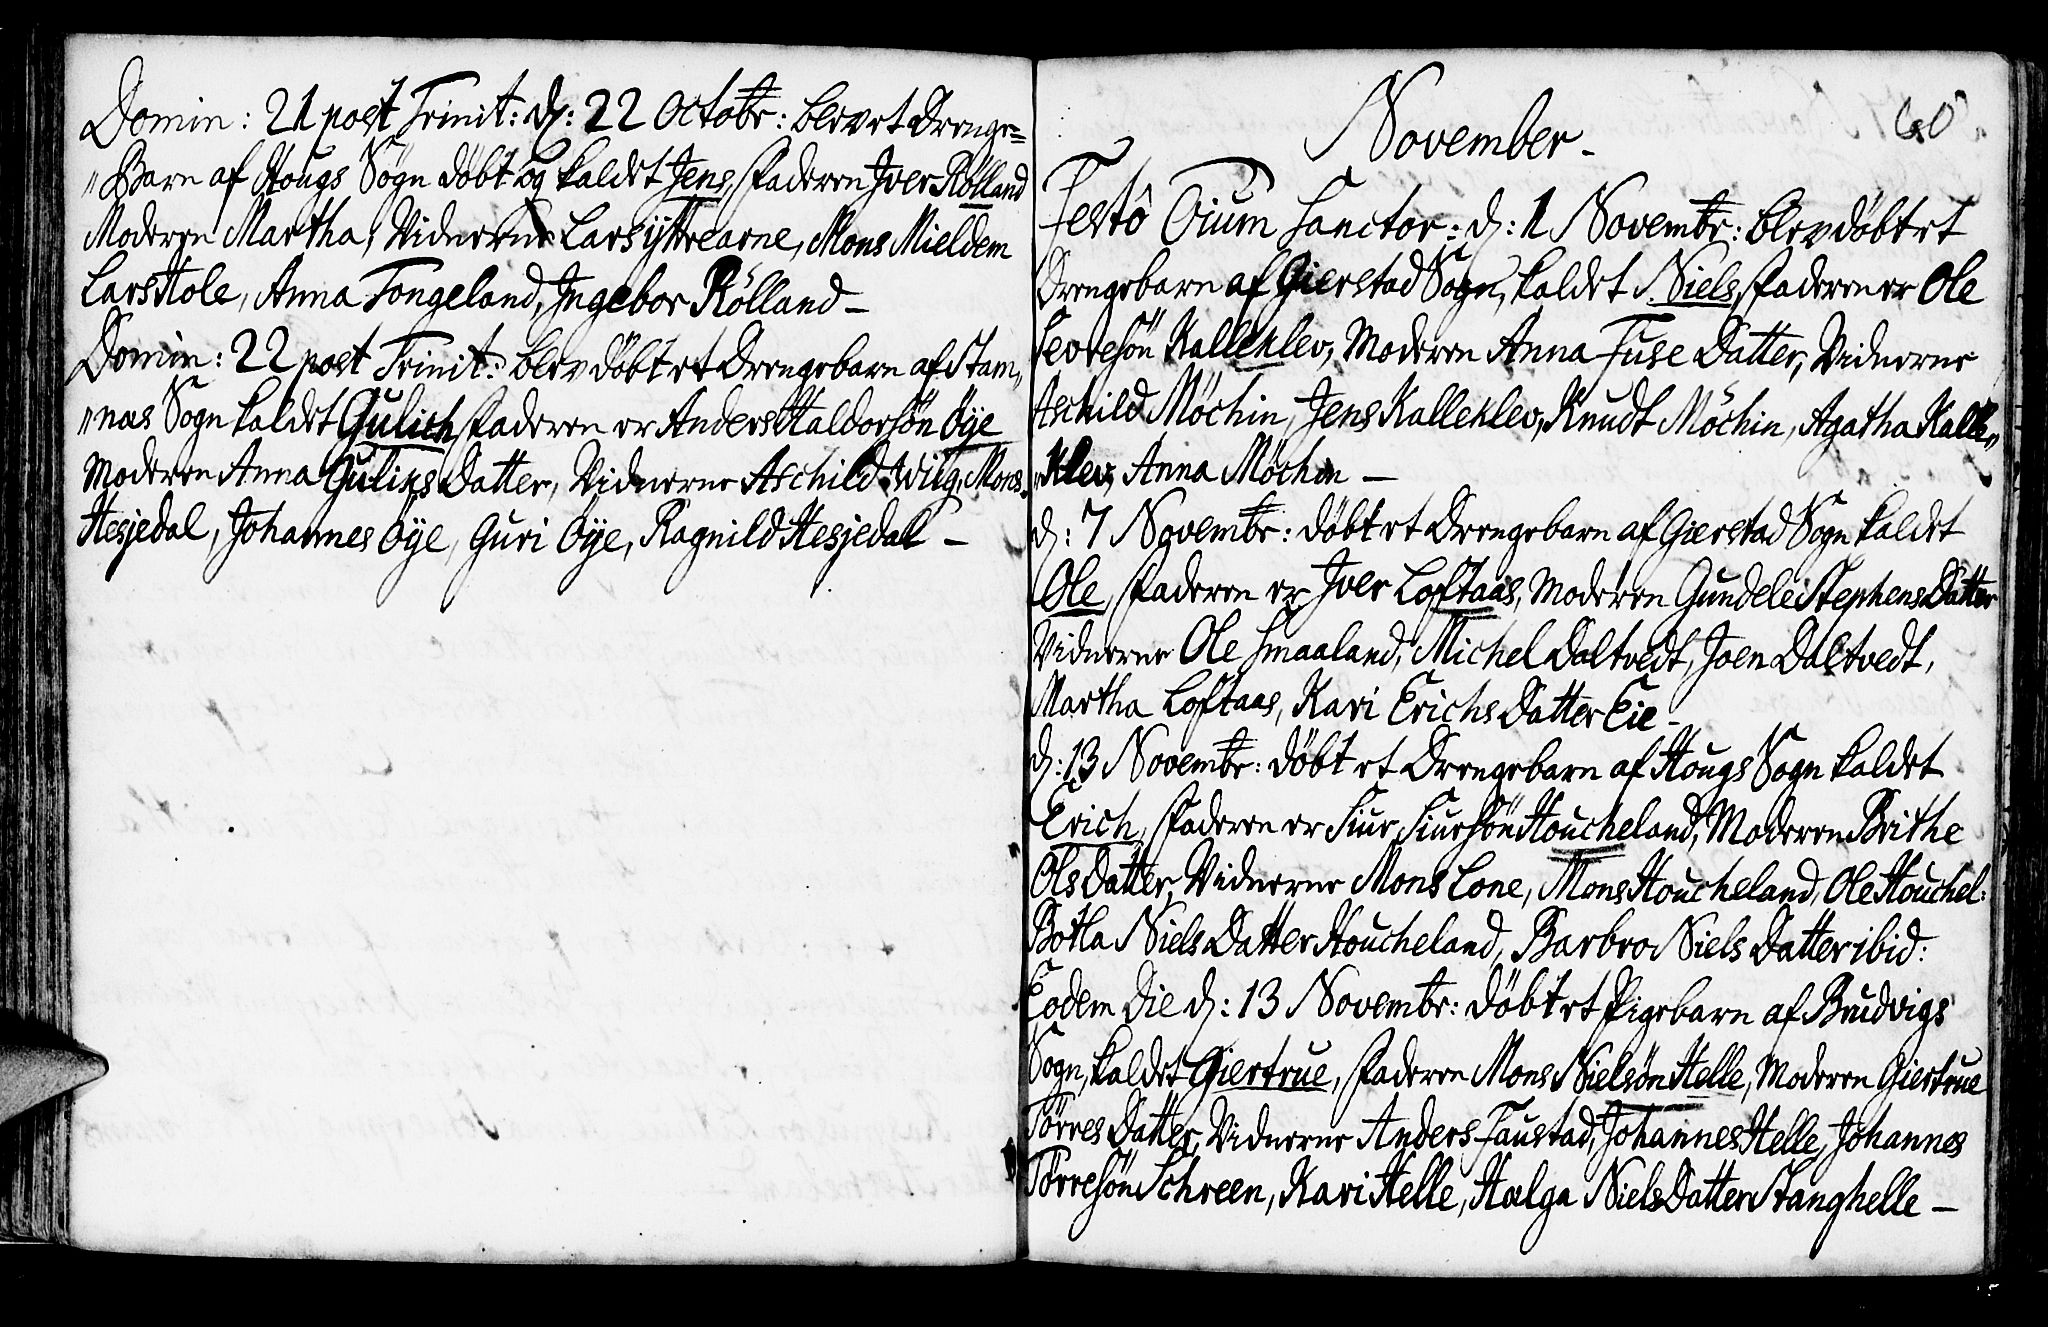 Domin: 21 post Trinit: d: 22 Octobr: blev et Drenge=
"Barn af Hougs Sogn döbt og kaldet Jens, Faderen Jver Rölland
Moderen Martha, Vidnerne Lars ÿttrearne, Mons Mieldem
Lars Hole, Anna Tongeland, Jngebor Rölland –
Domin: 22 post Trinit: blev döbt et Drengebarn af Stam„
„næs Sogn kaldet Gulich, Faderen er Anders Haldorsön Öÿe
Moderen Anna Guliks Datter, Vidnerne Aschild Wiig, Mons
Hesjedal, Johannes Öÿe, Guri Öÿe, Ragnild Hesjedal –
60
November –
Festô Oium Sanctor: d: 1 Novembr: blev döbt et
Drengebarn af Gierstad Sogn, kaldet Niels, Faderen er Ole
Sevresön Kalleklev, Moderen Anna Tuse Datter, Vidnerne
Aschild Möchin, Jens Kalleklev, Knudt Möchin, Agatha Kalle„
„klev, Anna Möchin –
d: 7 Novembr: döbt et Drengebarn af Gierstad Sogn kaldet
Ole, Faderen er Jver Loftaas, Moderen Gundele Stephens Datter
Vidnerne Ole Smaaland, Michel Daltvedt, Joen Daltvedt,
Martha Loftaas, Kari Erichs Datter Eie –
d: 13 Novembr: döbt et Drengebarn af Hougs Sogn kaldet
Erich, Faderen er Siur Siursön Houcheland, Moderen Brithe
Ols Datter, Vidnerne Mons Lone, Mons Houcheland, Ole Houchel:
Botla Niels Datter Houcheland, Barbro Niels Datter ibid:
Eodem Die d: 13 Novembr: döbt et Pigebarn af Brudvigs
Sogn, kaldet Giertrue, Faderen Mons Nielsön Helle, Moderen Giertrue
Törres Datter, Vidnerne Anders Faustad, Johannes Helle, Johannes
Törresön Schreen, Kari Helle, Hælga Niels Datter Stanghelle –